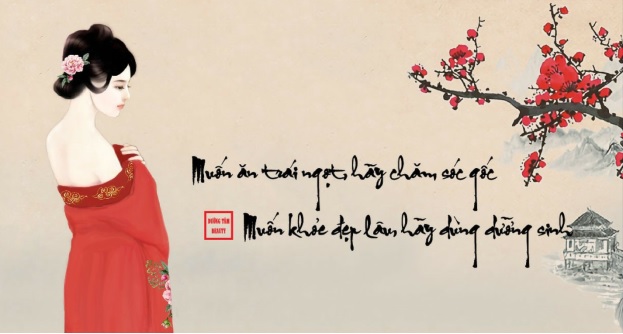 Muốn ăn trái ngọt, hãy chăm sóc gốc
Muốn khỏe đẹp lâu hãy dùng dưỡng sinh
DƯỠNG TÂM
BEAUTY